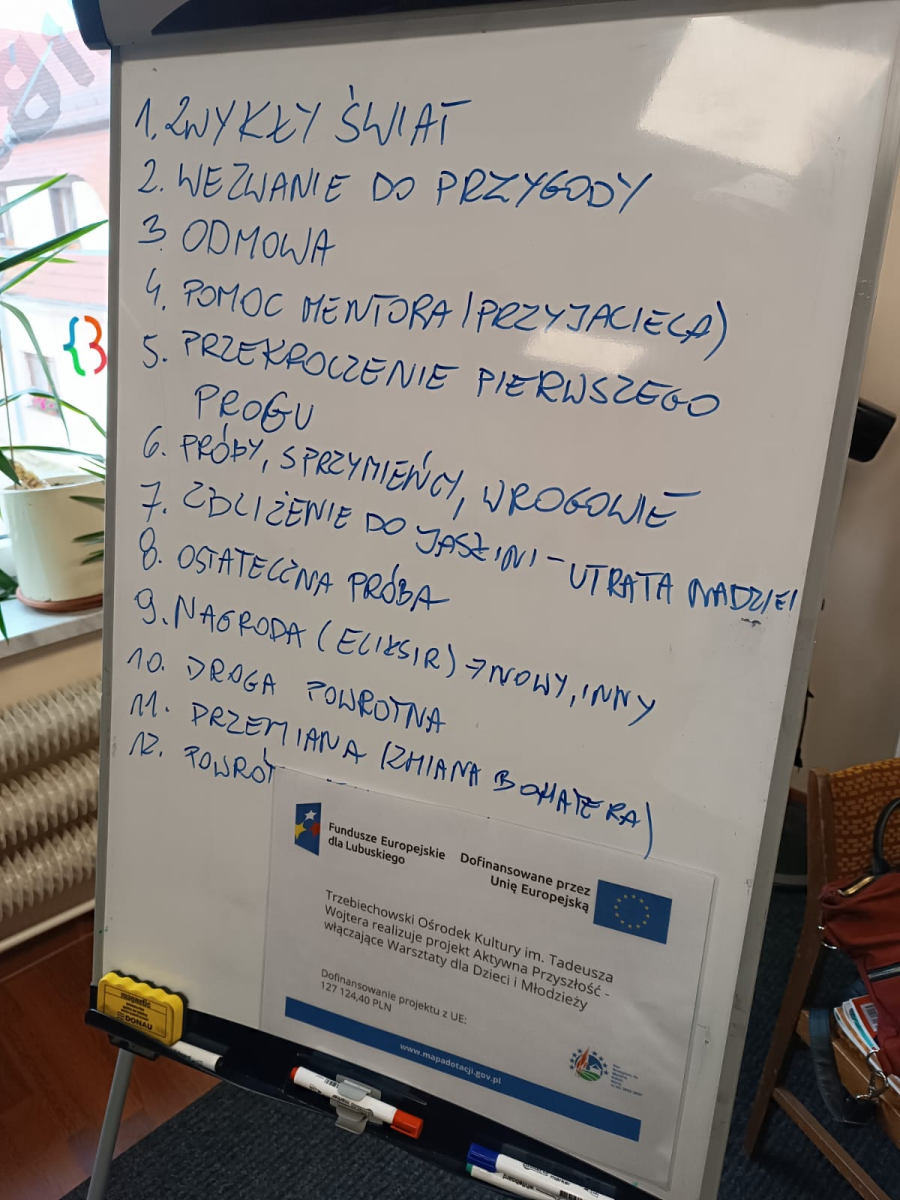 1. ZWYKŁY ŚWIAT
2. WEZWANIE DO PRZYGODY
3. ODMOWA
4. POMOC MENTORA (PRZYJACIELA)
5. PRZEKROCZENIE PIERWSZEGO
PROGU
6. PRÓBY, SPRZYMIEŃCY, WROGOWIE
7. ZBLIŻENIE DO JASKINI - UTRATA NADZIEI
8. OSTATECZNA PRÓBA
9. NAGRODA (ELIKSIR) → NOWY, INNY
10. DROGA POWROTNA
11. PRZEMIANA (ZMIANA BOHATERA)
12. POWRÓT
Fundusze Europejskie
dla Lubuskiego
Dofinansowane przez
Unię Europejską
Trzebiechowski Ośrodek Kultury im. Tadeusza
Wojtera realizuje projekt Aktywna Przyszłość -
włączające Warsztaty dla Dzieci i Młodzieży
Dofinansowanie projektu z UE:
127 124,40 PLN
www.mapadotacji.gov.pl
magnetic
DONAU